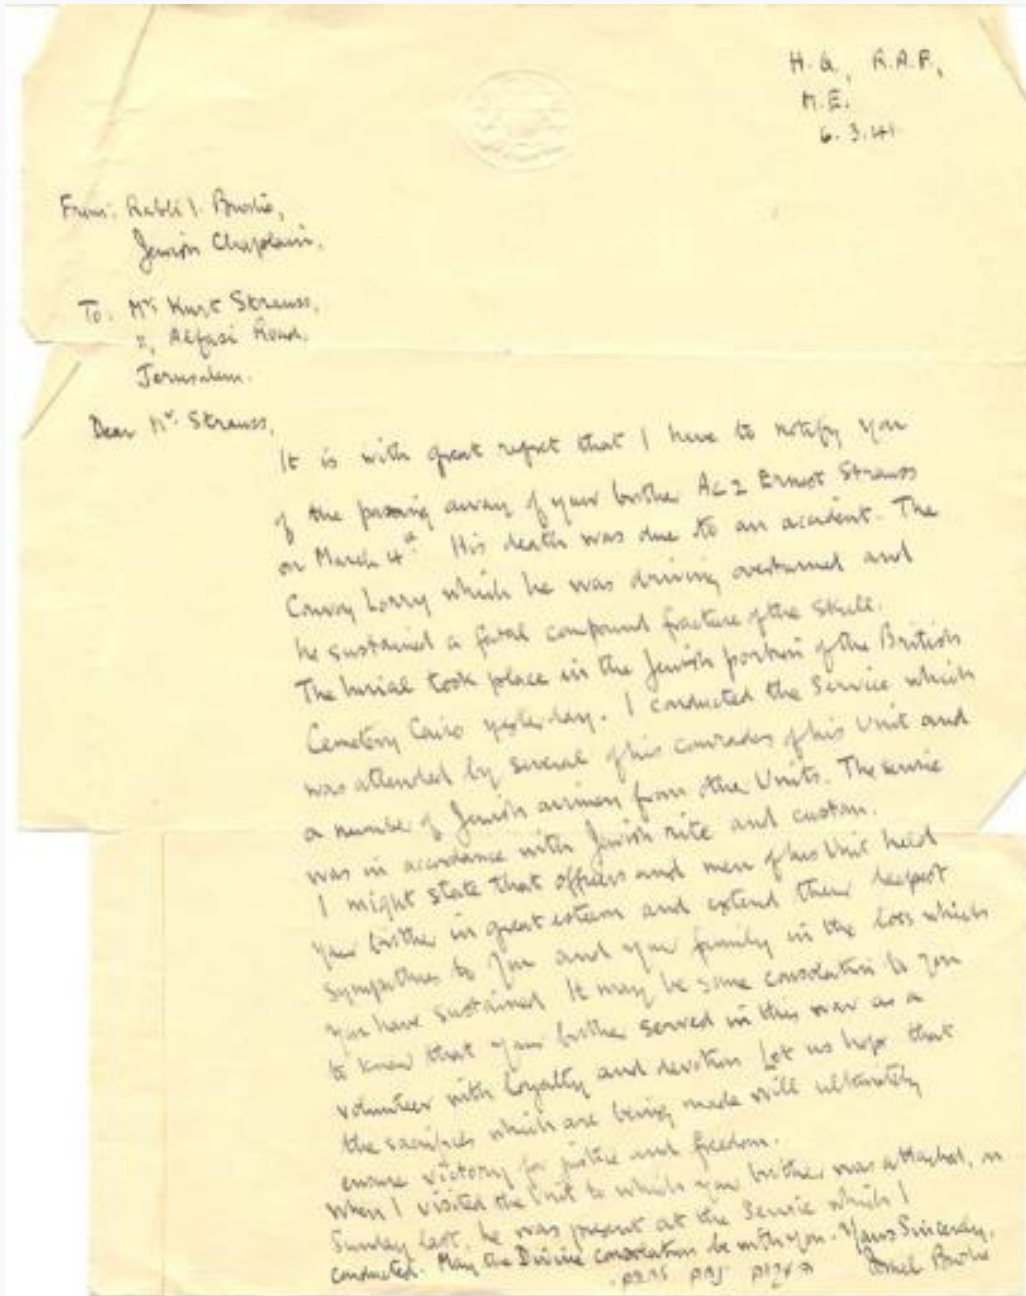 H.Q., R.A.F.,
M.E.
6.3.41
From: Rabbi I. Brodie,
Jewish Chaplain.
To: Mr Kurt Strauss,
Alfasi Road.
Jerusalem.
Dear Mr Strauss,
It is with great regret that I have to notify you
of the passing away of your brother AC2 Ernest Strauss
on March 4th. His death was due to an accident. The
Convoy Lorry which he was driving overturned and
he sustained a fatal compound fracture of the skull.
The burial took place in the Jewish portion of the British
Cemetery Cairo yesterday. I conducted the Service which
was attended by several of his comrades of his Unit and
a number of Jewish airmen from other Units. The service
was in accordance with Jewish rite and custom.
I might state that officers and men of his Unit held
your brother in great esteem and extend their deepest
sympathies to you and your family in the loss which
you have sustained. It may be some consolation to you
to know that your brother served in this war as a
volunteer with loyalty and devotion. Let us hope that
the sacrifices which are being made will ultimately
ensure victory for justice and freedom.
When I visited the Unit to which your brother was attached, on
Sunday last, he was present at the Service which I
conducted. May the Divine consolation be with you. Yours Sincerely,
Israel Brodie